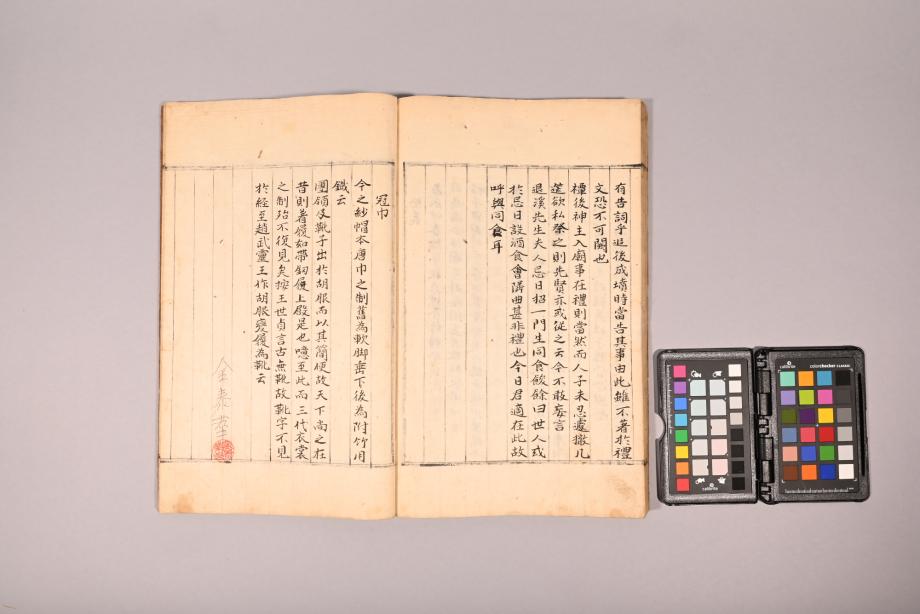 有告詞乎返後成墳時當告其事由此雖不著於禮
文恐不可闕也
禫後神主入廟事在禮則當然而人子未忍遽撤几
筵欲私祭之則先賢亦或從之云今不敢妄言
退溪先生夫人忌日招一門生同食餕餘曰世人或
於忌日設酒食會隣曲甚非禮也今日君適在此故
呼與同食耳
冠巾
今之紗帽本唐巾之制舊為軟脚垂下後為附竹用
鐵云
團領及靴子出於胡服而以其簡便故天下尚之在
昔則著履如帶釼履上殿是也噫至此而三代衣裳
之制殆不復見矣按王世貞言古無靴故靴字不見
於經至趙武靈王作胡服變履為靴云
金泰
calibrite
colorchecker CLASSIC
calibrite